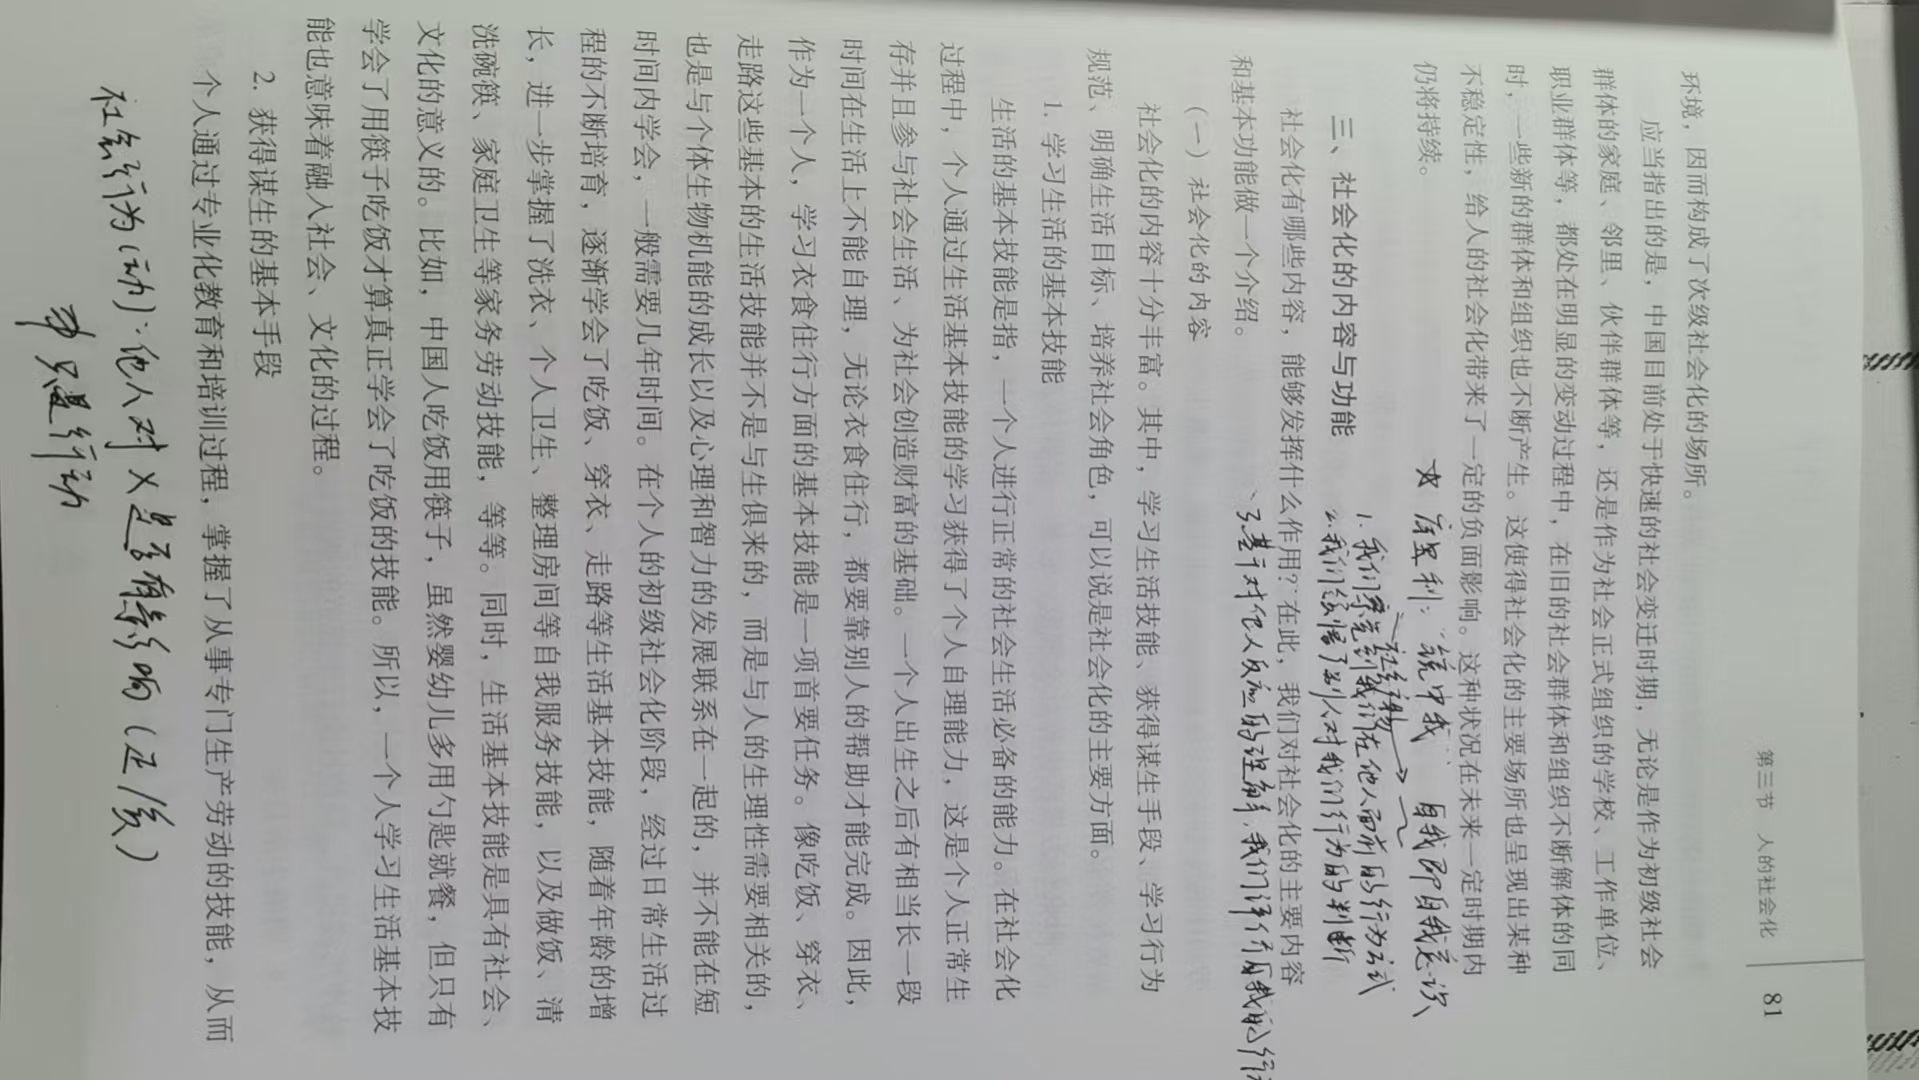 第三节 人的社会化 81
环境，因而构成了次级社会化的场所。
应当指出的是，中国目前处于快速的社会变迁时期，无论是作为初级社会
群体的家庭、邻里、伙伴群体等，还是作为社会正式组织的学校、工作单位、
职业群体等，都处在明显的变动过程中，在旧的社会群体和组织不断解体的同
时，一些新的群体和组织也不断产生。这使得社会化的主要场所也呈现出某种
不稳定性，给人的社会化带来了一定的负面影响。这种状况在未来一定时期内
仍将持续。
☆ 库里利："镜中我" 自我即自我意识
1. 我们察觉到我们在他人面前的行为方式
2. 我们领悟了别人对我们行为的判断
3. 基于对他人反应的理解，我们评价自我的行
三、社会化的内容与功能
社会化有哪些内容，能够发挥什么作用？在此，我们对社会化的主要内容
和基本功能做一个介绍。
（一）社会化的内容
社会化的内容十分丰富。其中，学习生活技能、获得谋生手段、学习行为
规范、明确生活目标、培养社会角色，可以说是社会化的主要方面。
1. 学习生活的基本技能
生活的基本技能是指，一个人进行正常的社会生活必备的能力。在社会化
过程中，个人通过生活基本技能的学习获得了个人自理能力，这是个人正常生
存并且参与社会生活、为社会创造财富的基础。一个人出生之后有相当长一段
时间在生活上不能自理，无论衣食住行，都要靠别人的帮助才能完成。因此，
作为一个人，学习衣食住行方面的基本技能是一项首要任务。像吃饭、穿衣、
走路这些基本的生活技能并不是与生俱来的，而是与人的生理性需要相关的，
也是与个体生物机能的成长以及心理和智力的发展联系在一起的，并不能在短
时间内学会，一般需要几年时间。在个人的初级社会化阶段，经过日常生活过
程的不断培育，逐渐学会了吃饭、穿衣、走路等生活基本技能，随着年龄的增
长，进一步掌握了洗衣、个人卫生、整理房间等自我服务技能，以及做饭、清
洗碗筷、家庭卫生等家务劳动技能，等等。同时，生活基本技能是具有社会、
文化的意义的。比如，中国人吃饭用筷子，虽然婴幼儿多用勺匙就餐，但只有
学会了用筷子吃饭才算真正学会了吃饭的技能。所以，一个人学习生活基本技
能也意味着融入社会、文化的过程。
2. 获得谋生的基本手段
个人通过专业化教育和培训过程，掌握了从事专门生产劳动的技能，从而
社会行为（动）：他人对 X 是否有影响（正/负）
只是行动